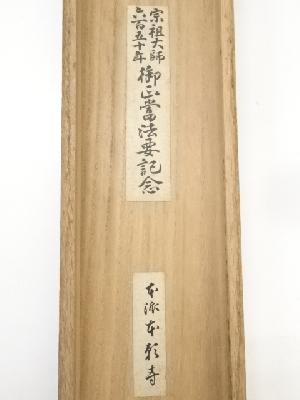 宗祖大師
六百五十年
御正當法要記念
本派本願寺